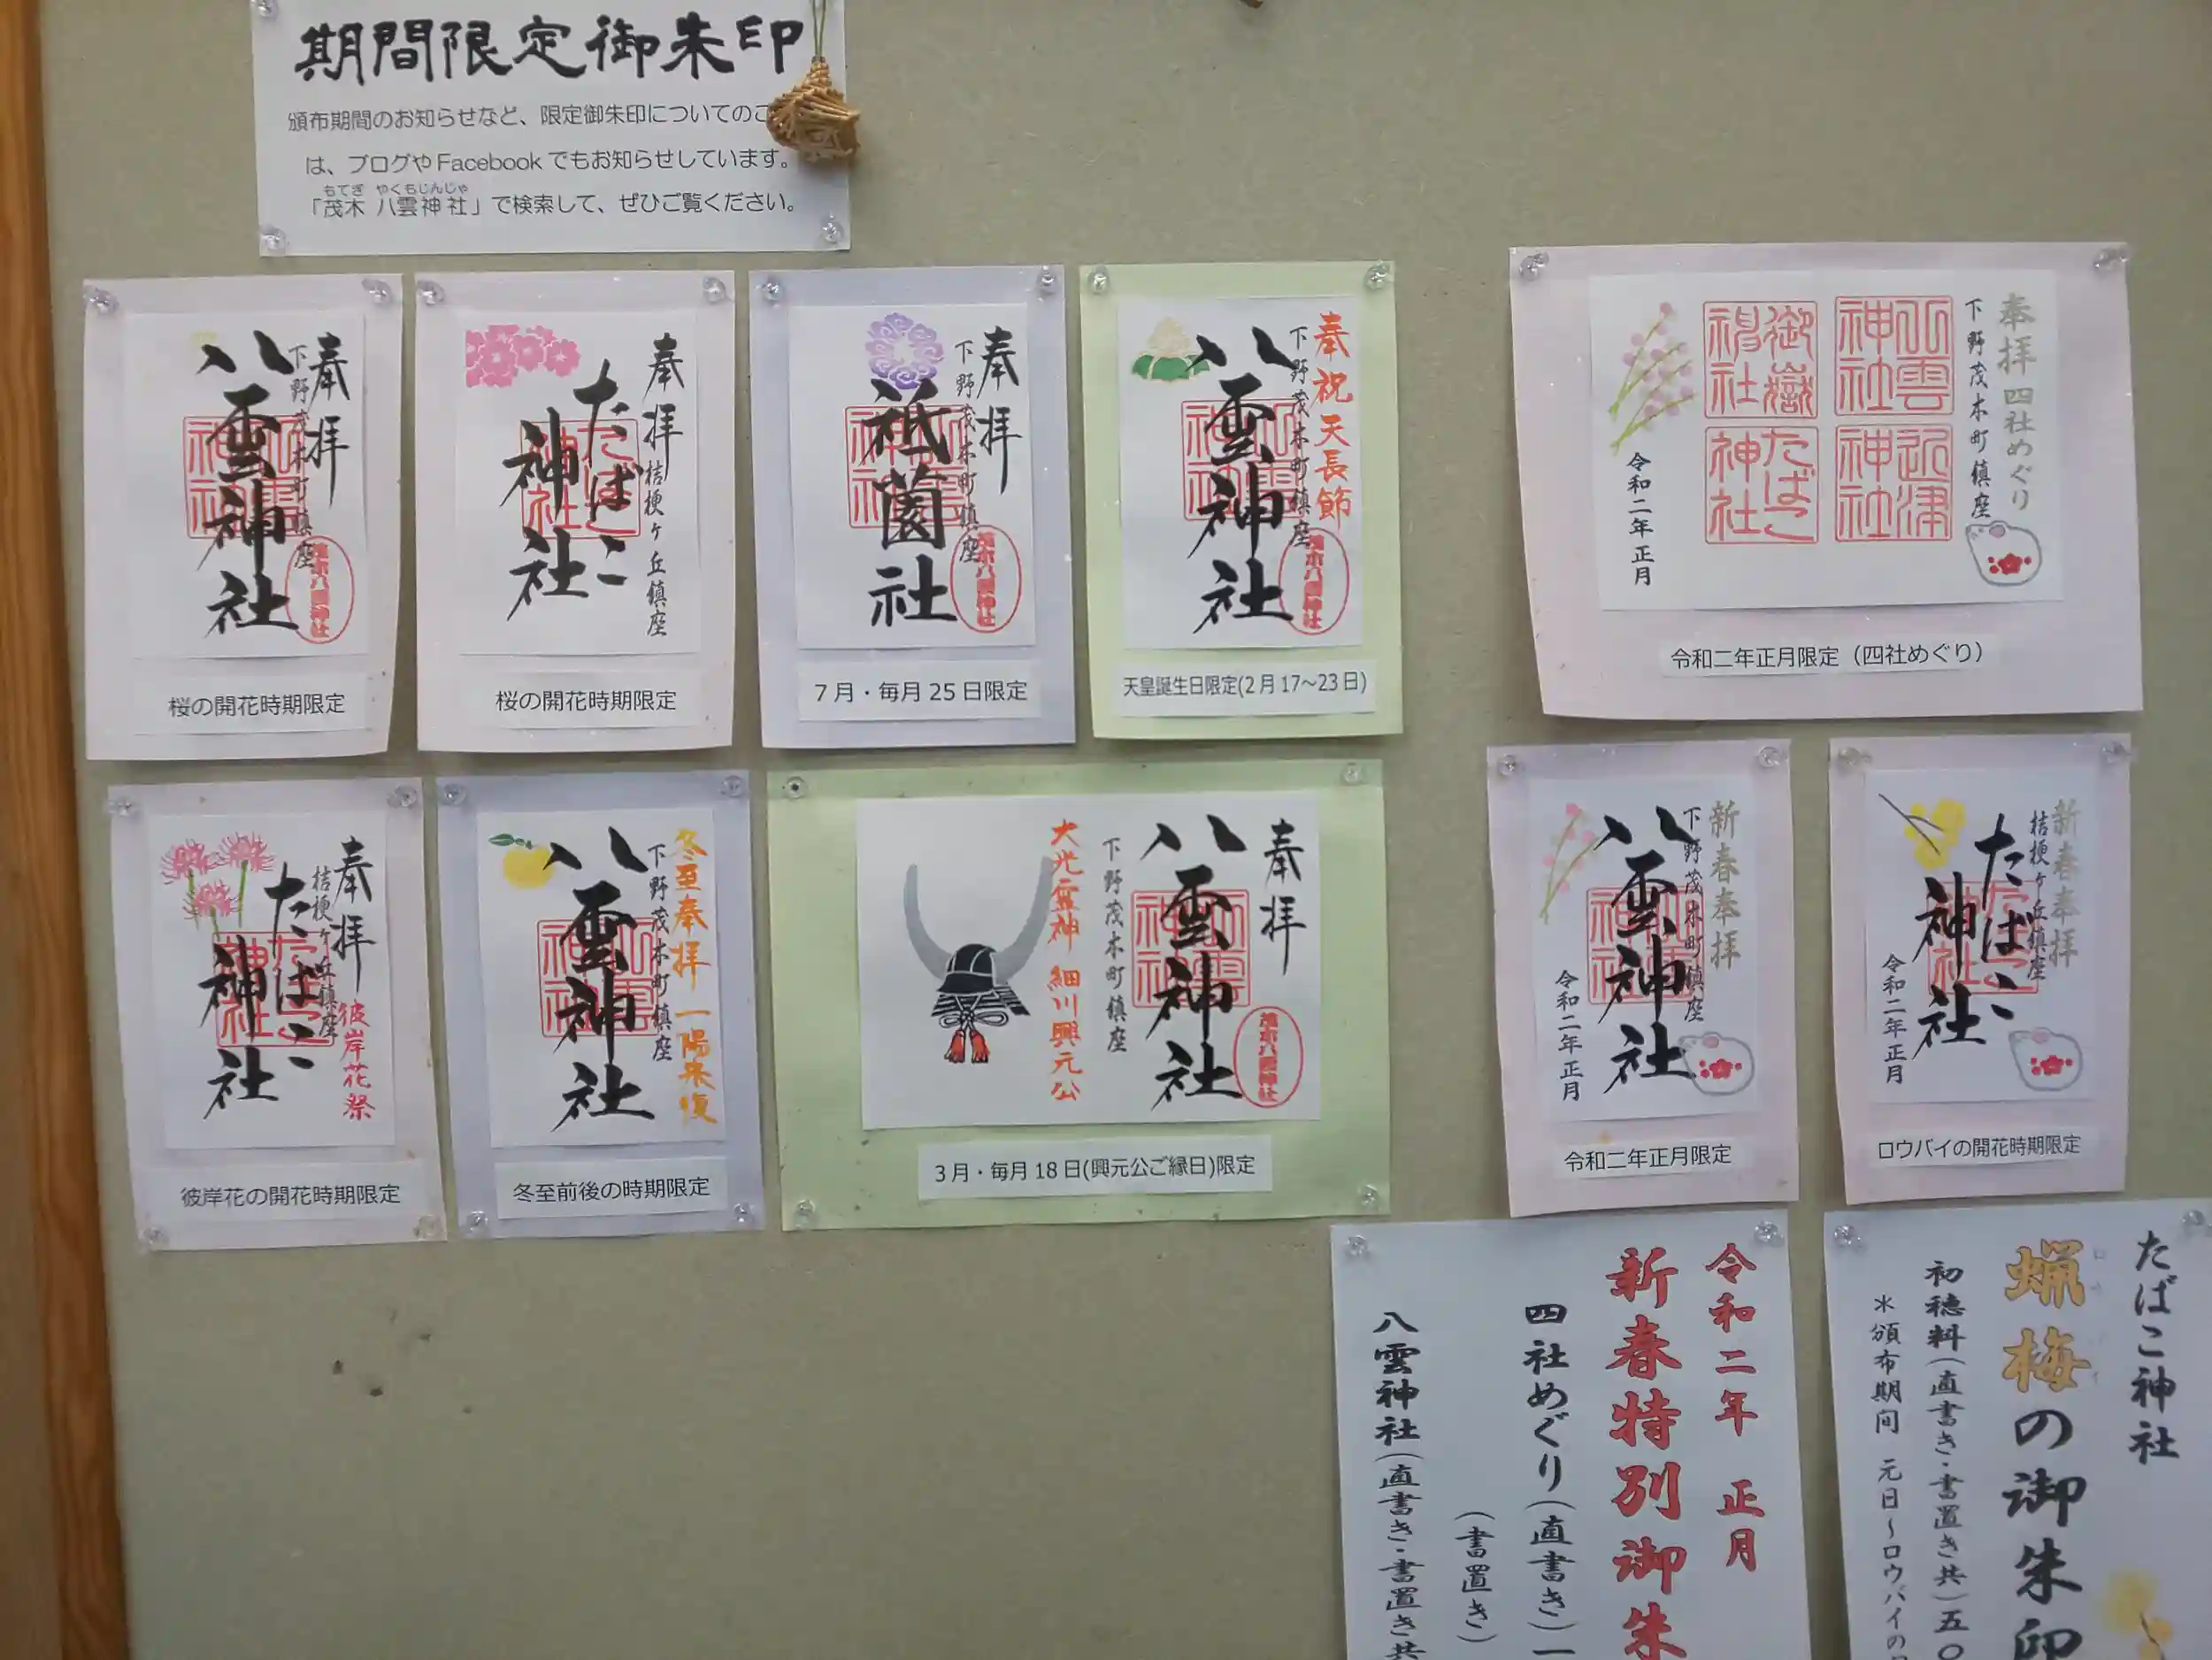 期間限定御朱印
頒布期間のお知らせなど、限定御朱印についてのご
は、ブログやFacebookでもお知らせしています。
もてぎ やくもじんじゃ
「茂木 八雲神社」で検索して、ぜひご覧ください。
奉拝
下野茂木町鎮座
八雲神社
茂木八雲神社
桜の開花時期限定
奉拝
桔梗ヶ丘鎮座
たばこ
神社
桜の開花時期限定
奉拝
下野茂木町鎮座
祇園社
茂木八雲神社
7月・毎月25日限定
奉祝天長節
下野茂木町鎮座
八雲神社
茂木八雲神社
天皇誕生日限定(2月17～23日)
奉拝 四社めぐり
下野茂木町鎮座
八雲神社
近津神社
御嶽神社
たばこ神社
令和二年正月
令和二年正月限定（四社めぐり）
奉拝
彼岸花祭
桔梗ヶ丘鎮座
たばこ
神社
彼岸花の開花時期限定
冬至奉拝 一陽来復
下野茂木町鎮座
八雲神社
冬至前後の時期限定
奉拝
八雲神社
茂木八雲神社
下野茂木町鎮座
大光霊神 細川興元公
3月・毎月18日(興元公ご縁日)限定
新春奉拝
下野茂木町鎮座
八雲神社
令和二年正月
令和二年正月限定
新春奉拝
桔梗ヶ丘鎮座
たばこ
神社
令和二年正月
ロウバイの開花時期限定
令和二年 正月
新春特別御朱
四社めぐり(直書き)一
(書置き)
八雲神社(直書き・書置き共
たばこ神社
蝋梅の御朱印
初穂料(直書き・書置き共)五〇
＊頒布期間 元日～ロウバイの